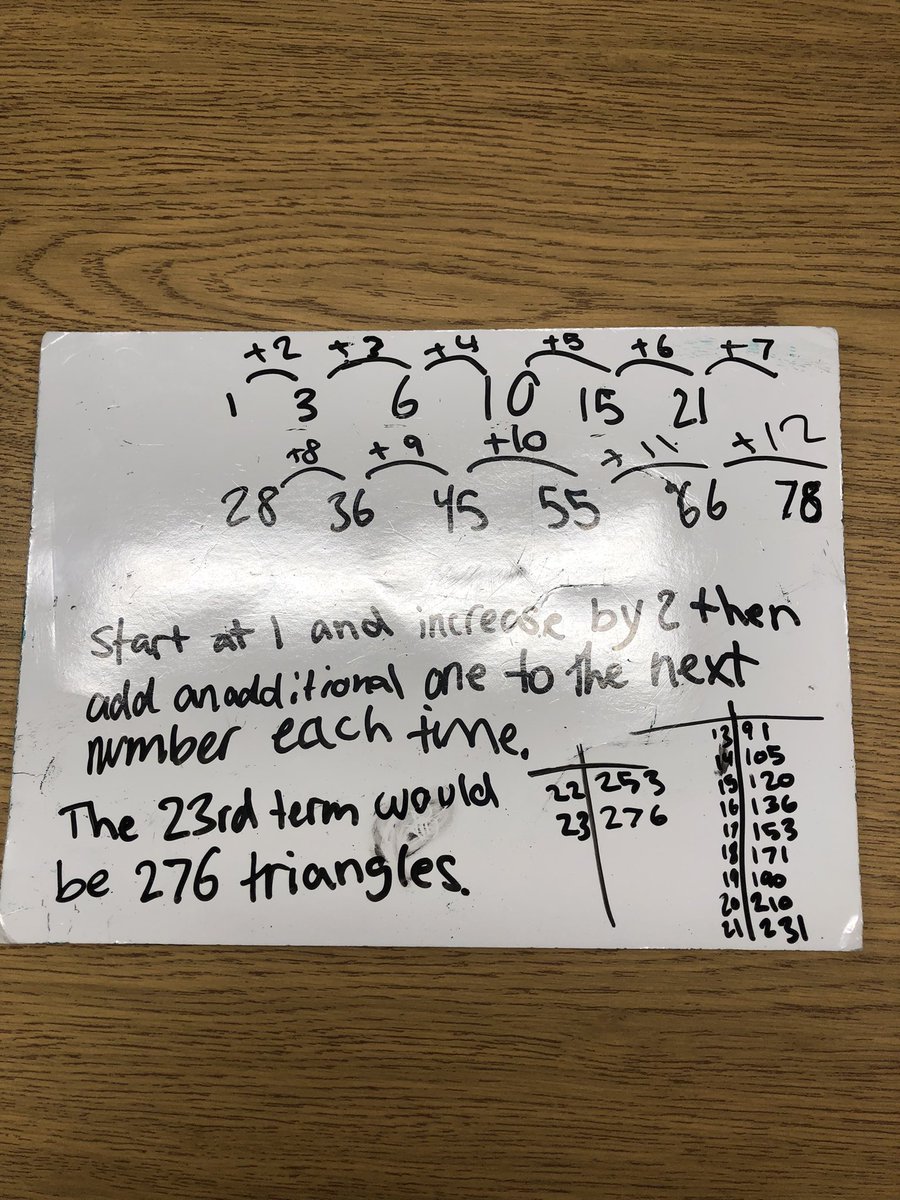 +2 +3 +4 +5 +6 +7
1 3 6 10 15 21
+8 +9 +10 +11 +12
28 36 45 55 66 78
Start at 1 and increase by 2 then
add an additional one to the next
number each time.
The 23rd term would
be 276 triangles.
22 253
23 276
13 91
14 105
15 120
16 136
17 153
18 171
19 190
20 210
21 231